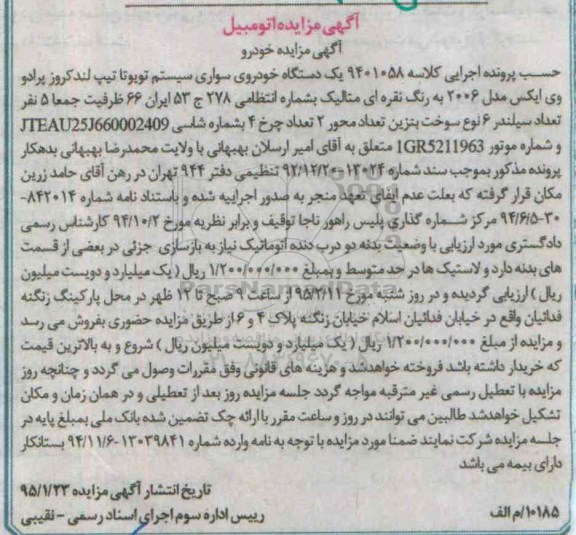 آگهی مزایده اتومبیل
آگهی مزایده خودرو
حسب پرونده اجرایی کلاسه ۹۴۰۱۰۵۸ یک دستگاه خودروی سواری سیستم تویوتا تیپ لندکروز پرادو
وی ایکس مدل ۲۰۰۶ به رنگ نقره ای متالیک بشماره انتظامی ۲۷۸ ج ۵۳ ایران ۶۶ ظرفیت جمعا ۵ نفر
تعداد سیلندر ۶ نوع سوخت بنزین تعداد محور ۲ تعداد چرخ ۴ بشماره شاسی JTEAU25J660002409
و شماره موتور 1GR5211963 متعلق به آقای امیر ارسلان بهبهانی با ولایت محمدرضا بهبهانی بدهکار
پرونده مذکور بموجب سند شماره ۱۳۰۲۴-۹۲/۱۲/۲۰ تنظیمی دفتر ۹۴۴ تهران در رهن آقای حامد زرین
مکان قرار گرفته که بعلت عدم ایفای تعهد منجر به صدور اجراییه شده و باستناد نامه شماره ۸۴۲۰۱۴-
۹۴/۶/۵-۳۰ مرکز شماره گذاری پلیس راهور ناجا توقیف و برابر نظریه مورخ ۹۴/۱۰/۲ کارشناس رسمی
دادگستری مورد ارزیابی با وضعیت بدنه دو درب دنده اتوماتیک نیاز به بازسازی جزئی در بعضی از قسمت
های بدنه دارد و لاستیک ها در حد متوسط و بمبلغ ۱/۲۰۰/۰۰۰/۰۰۰ ریال ( یک میلیارد و دویست میلیون
ریال ) ارزیابی گردیده و در روز شنبه مورخ ۹۵/۲/۱۱ از ساعت ۹ صبح تا ۱۲ ظهر در محل پارکینگ زنگنه
فدائیان واقع در خیابان فدائیان اسلام خیابان زنگنه پلاک ۴ و ۶ از طریق مزایده حضوری بفروش می رسد
و مزایده از مبلغ ۱/۲۰۰/۰۰۰/۰۰۰ ریال ( یک میلیارد و دویست میلیون ریال ) شروع و به بالاترین قیمت
که خریدار داشته باشد فروخته خواهدشد و هزینه های قانونی وفق مقررات وصول می گردد و چنانچه روز
مزایده با تعطیل رسمی غیر مترقبه مواجه گردد جلسه مزایده روز بعد از تعطیلی و در همان زمان و مکان
تشکیل خواهدشد طالبین می توانند در روز و ساعت مقرر با ارائه چک تضمین شده بانک ملی بمبلغ پایه در
جلسه مزایده شرکت نمایند ضمنا مورد مزایده با توجه به نامه وارده شماره ۱۳۰۳۹۸۴۱-۹۴/۱۱/۶ بستانکار
دارای بیمه می باشد
تاریخ انتشار آگهی مزایده ۹۵/۱/۲۳
۱۰۱۸۵/م الف
رییس اداره سوم اجرای اسناد رسمی - نقیبی
ParsNamadData